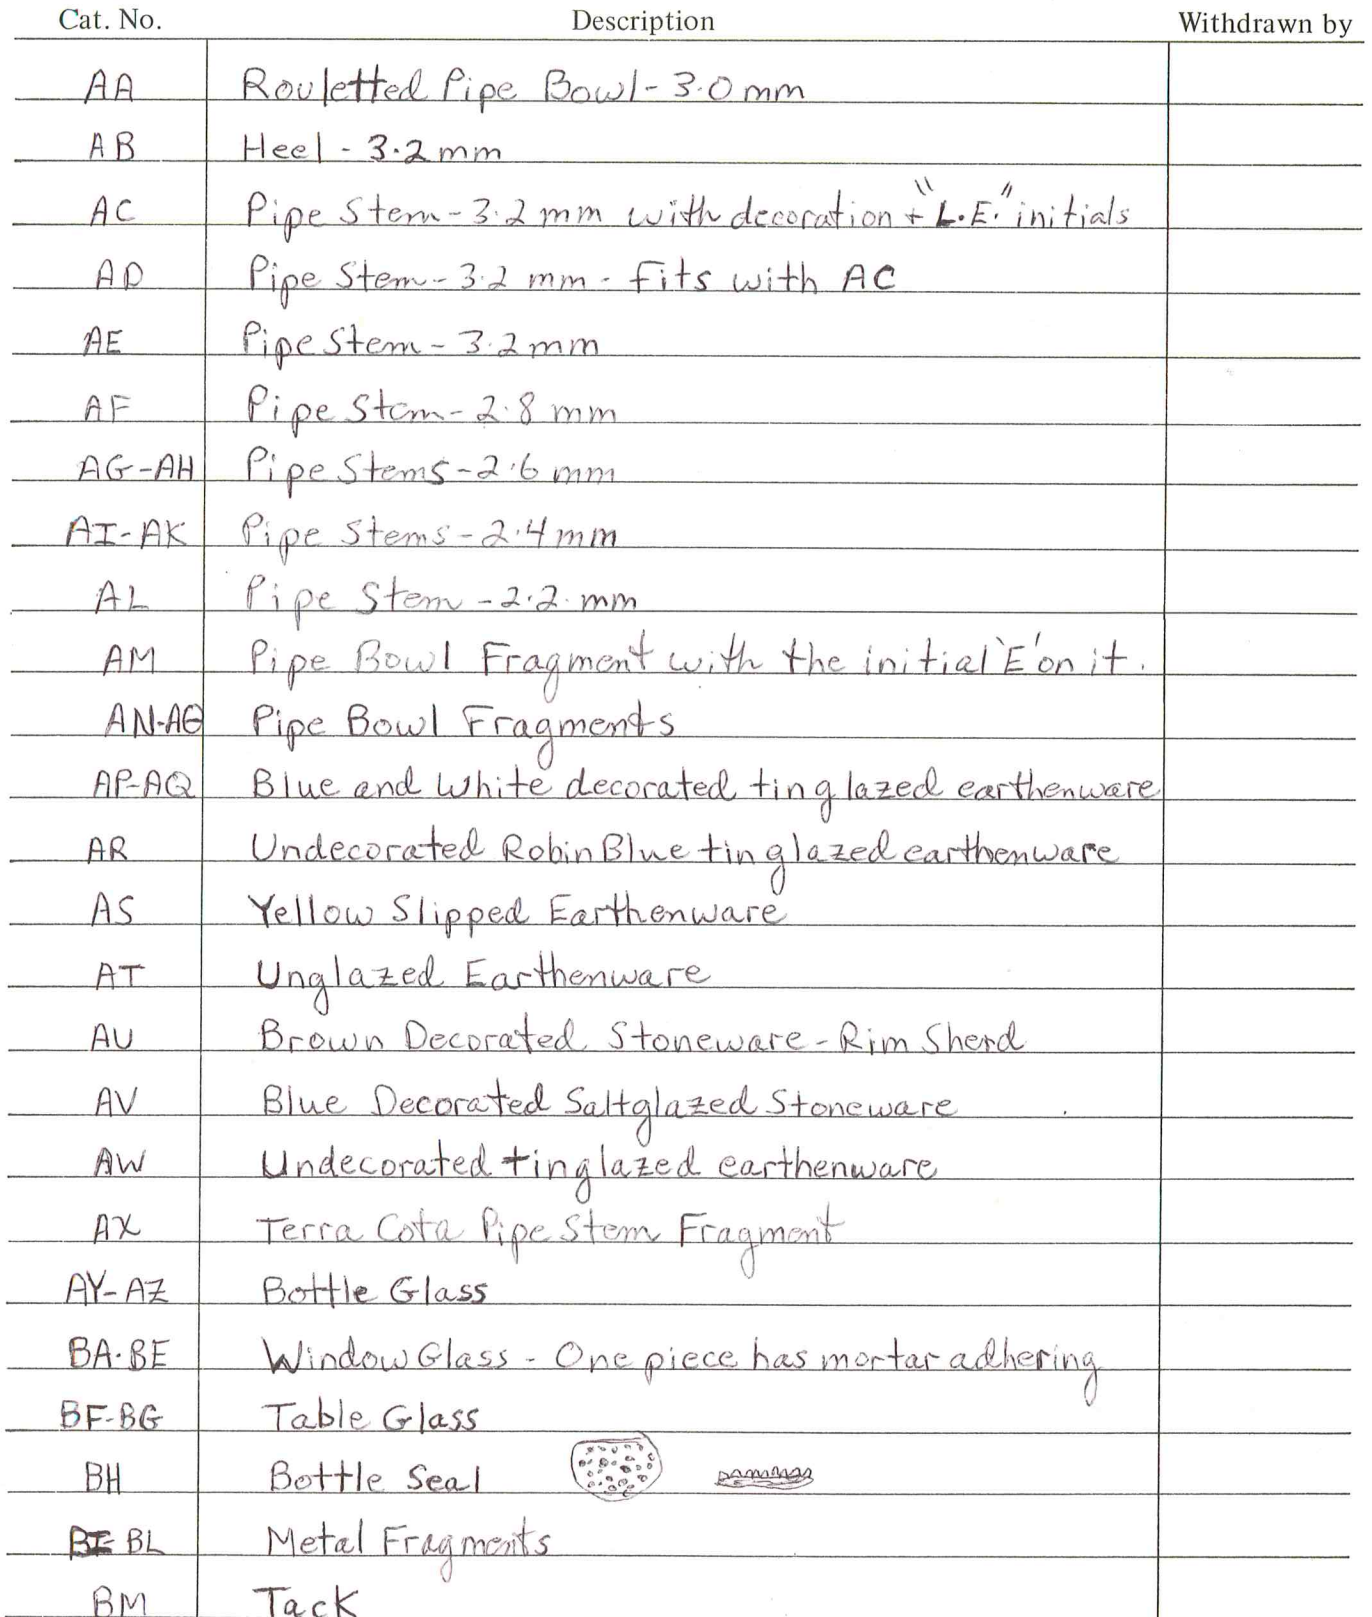 Cat. No. Description Withdrawn by
AA Rouletted Pipe Bowl - 3.0 mm
AB Heel - 3.2 mm
AC Pipe Stem - 3.2 mm with decoration + "L.E." initials
AD Pipe Stem - 3.2 mm - fits with AC
AE Pipe Stem - 3.2 mm
AF Pipe Stem - 2.8 mm
AG-AH Pipe Stems - 2.6 mm
AI-AK Pipe Stems - 2.4 mm
AL Pipe Stem - 2.2 mm
AM Pipe Bowl Fragment with the initial 'E' on it.
AN-AO Pipe Bowl Fragments
AP-AQ Blue and White decorated tin glazed earthenware
AR Undecorated Robin Blue tin glazed earthenware
AS Yellow Slipped Earthenware
AT Unglazed Earthenware
AU Brown Decorated Stoneware - Rim Sherd
AV Blue Decorated Saltglazed Stoneware
AW Undecorated tin glazed earthenware
AX Terra Cota Pipe Stem Fragment
AY-AZ Bottle Glass
BA-BE Window Glass - One piece has mortar adhering
BF-BG Table Glass
BH Bottle Seal
BI-BL Metal Fragments
BM Tack